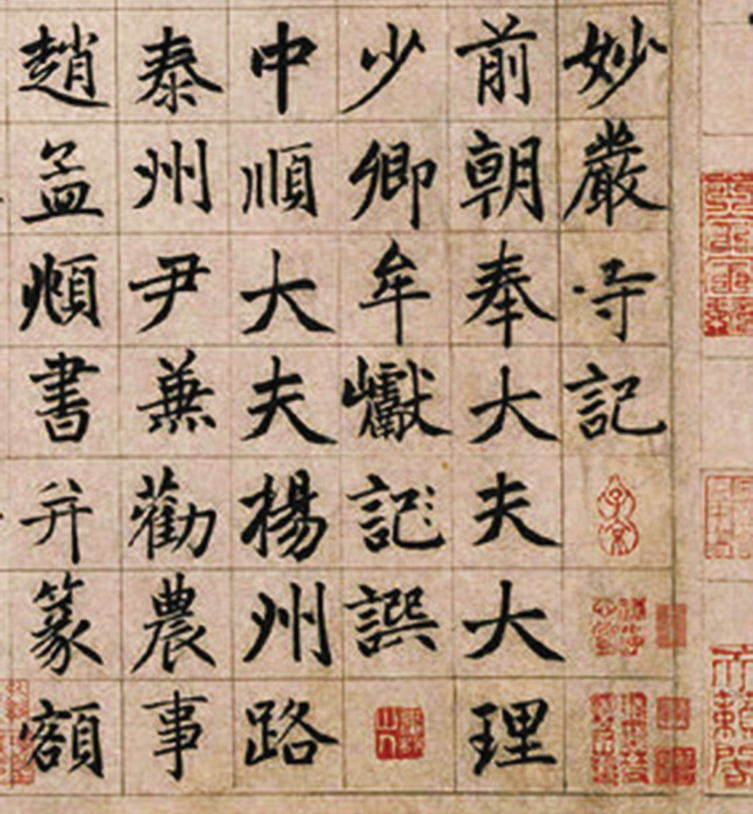 妙嚴寺記
前朝奉大夫大理
少卿牟巘記譔
中順大夫楊州路
泰州尹兼勸農事
趙孟頫書并篆額